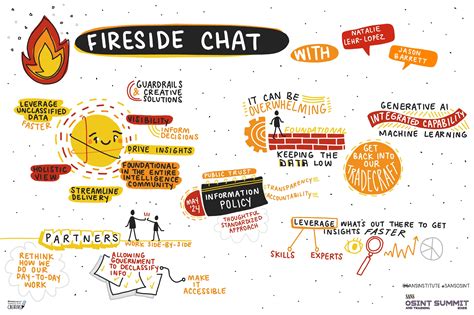 FIRESIDE CHAT
WITH
NATALIE
LEHR-LOPEZ
JASON
BARRETT
GUARDRAILS
& CREATIVE
SOLUTIONS
LEVERAGE
UNCLASSIFIED
DATA
FASTER
VISIBILITY
INFORM
DECISIONS
DRIVE INSIGHTS
HOLISTIC
VIEW
FOUNDATIONAL
IN THE ENTIRE
INTELLIGENCE
COMMUNITY
STREAMLINE
DELIVERY
IT CAN BE
OVERWHELMING
FOUNDATIONAL
KEEPING THE
DATA LOW
GENERATIVE AI
INTEGRATED CAPABILITY
MACHINE LEARNING
GET
BACK INTO
OUR
TRADECRAFT
PUBLIC TRUST
MAY '24
INFORMATION
POLICY
THOUGHTFUL
STANDARDIZED
APPROACH
TRANSPARENCY
ACCOUNTABILITY
PARTNERS
WORK SIDE-BY-SIDE
RETHINK
HOW WE
DO OUR
DAY-TO-DAY
WORK
ALLOWING
GOVERNMENT
TO DECLASSIFY
INFO
MAKE IT
ACCESSIBLE
LEVERAGE WHAT'S OUT THERE TO GET
INSIGHTS FASTER
SKILLS
EXPERTS
@SANSINSTITUTE #SANSOSINT
SANS
OSINT SUMMIT